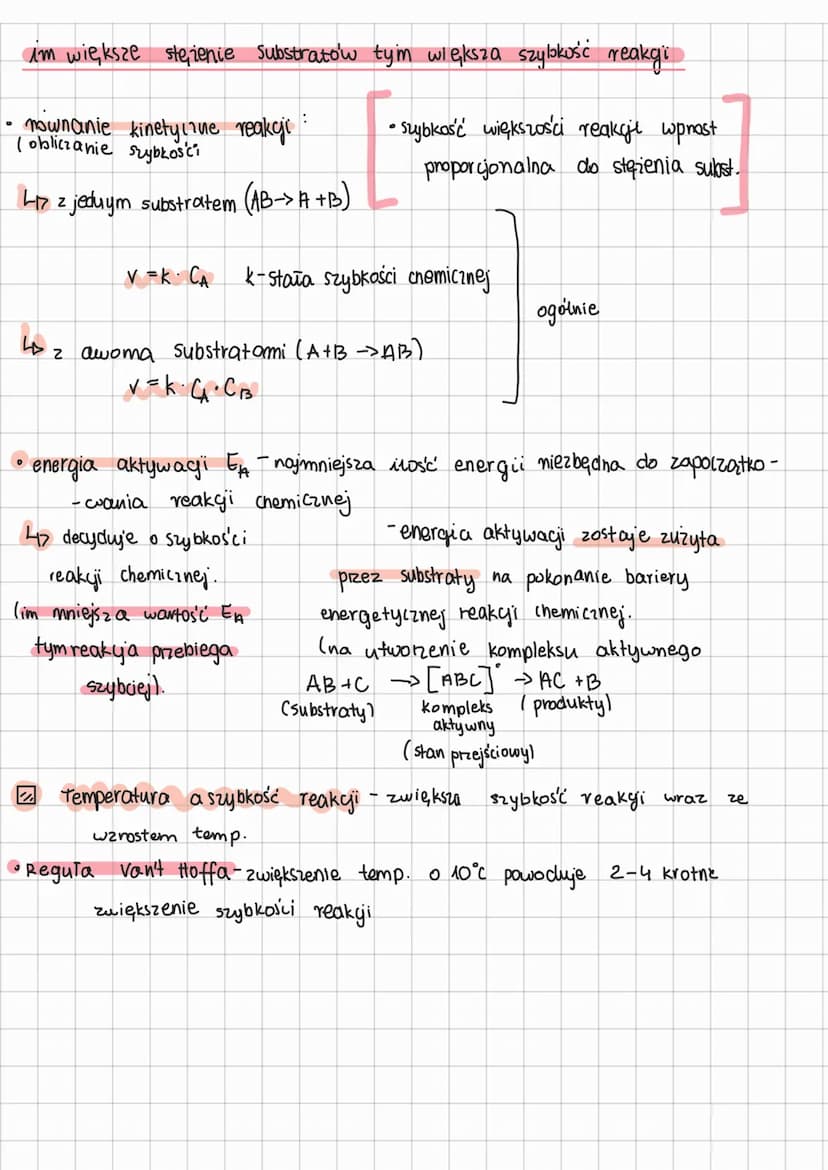 im większe stężenie substratów tym większa szybkość reakcji
• równanie kinetyczne reakcji :
(obliczanie szybkości
• szybkość większości reakcji wprost
proporcjonalna do stężenia subst.
↳ z jednym substratem (AB->A+B)
v=k·C_A k-stała szybkości chemicznej
ogólnie
↳ z dwoma substratami (A+B ->AB)
v=k·C_A·C_B
• energia aktywacji E_A - najmniejsza ilość energii niezbędna do zapoczątko-
-wania reakcji chemicznej
↳ decyduje o szybkości
reakcji chemicznej.
(im mniejsza wartość E_A
tym reakcja przebiega
szybciej).
- energia aktywacji zostaje zużyta
przez substraty na pokonanie bariery
energetycznej reakcji chemicznej.
(na utworzenie kompleksu aktywnego
AB+C -> [ABC]* -> AC+B
(substraty) kompleks (produkty)
aktywny
(stan przejściowy)
Temperatura a szybkość reakcji - zwiększa szybkość reakcji wraz ze
wzrostem temp.
• Reguła Van't Hoffa - zwiększenie temp. o 10°C powoduje 2-4 krotne
zwiększenie szybkości reakcji